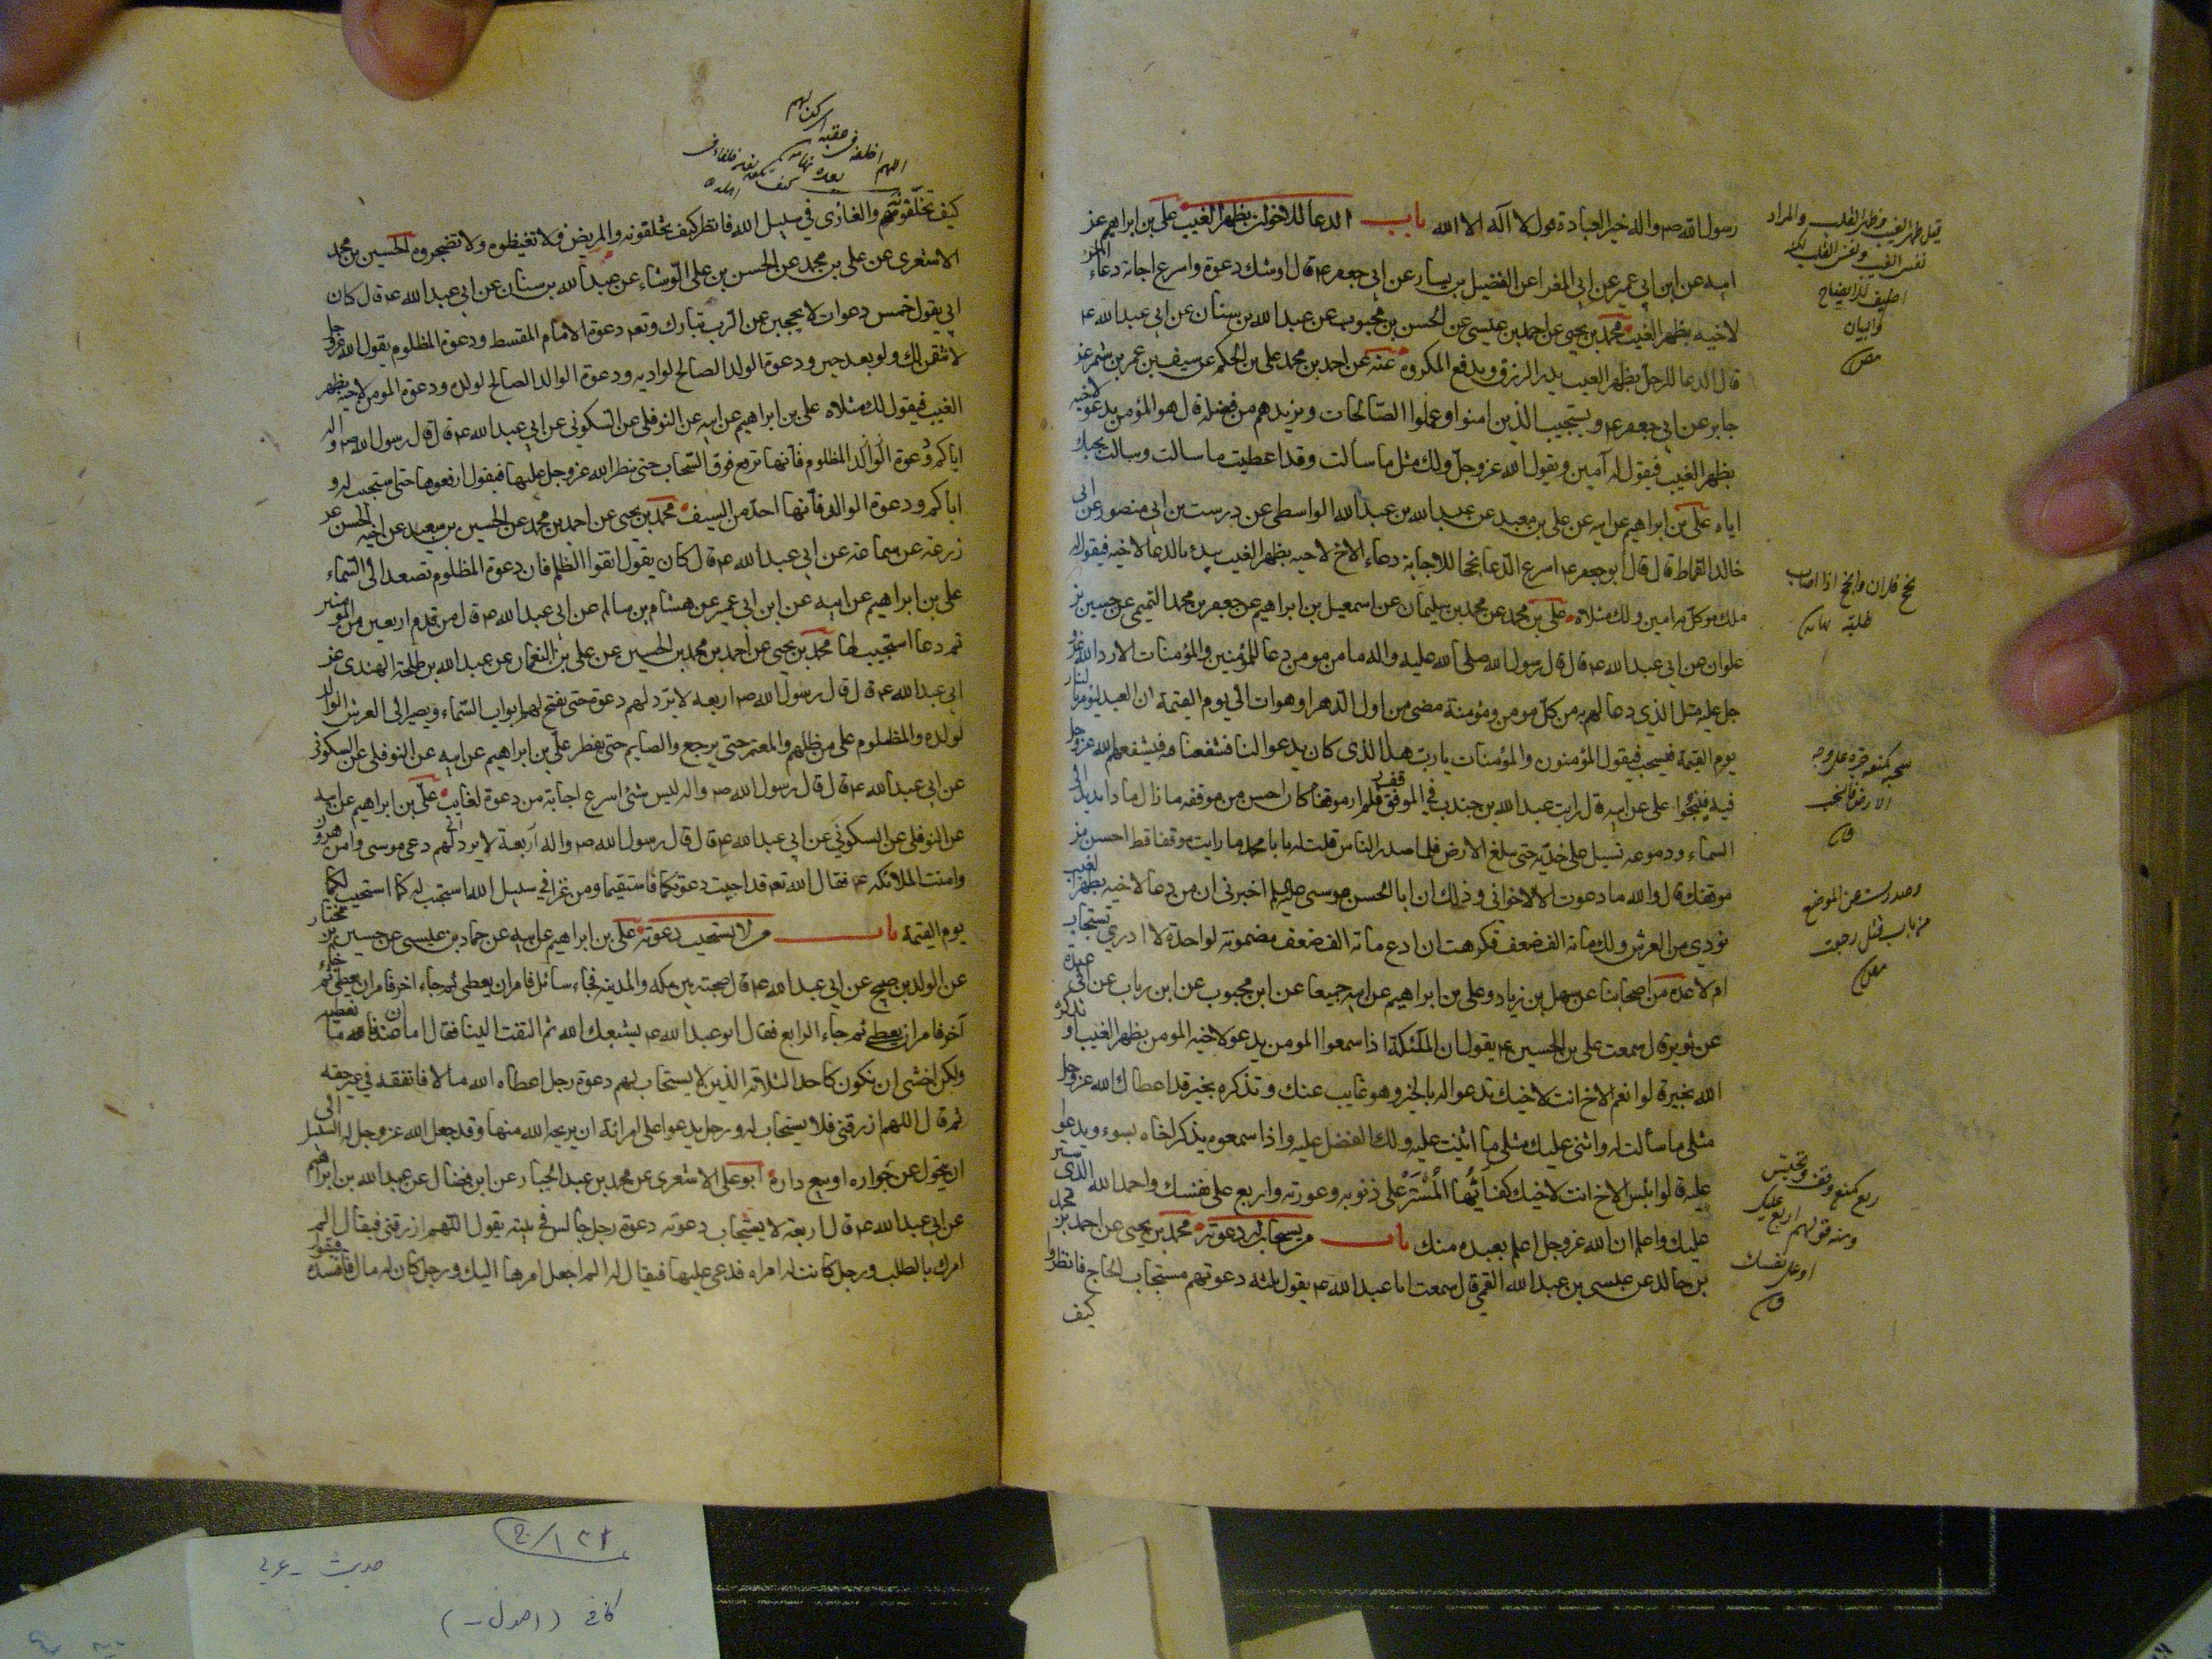 رسول الله صم واله خير العبادة قول لا اله الا الله باب الدعا للاخوان بظهر الغيب علي بن ابراهيم عن
ابيه عن ابن ابي عمير عن ابي المغرا عن الفضيل بن يسار عن ابي جعفر ع قال اوشك دعوة واسرع اجابة دعاء المرء
لاخيه بظهر الغيب محمد بن يحيى عن احمد بن محمد بن عيسى عن الحسن بن محبوب عن عبد الله بن سنان عن ابي عبد الله ع
قال الدعا للرجل بظهر الغيب يدر الرزق ويدفع المكروه عنه عن احمد بن محمد علي بن الحكم عن سيف بن عمر بن شمر عن
جابر عن ابي جعفر ع ويستجيب الذين امنوا وعملوا الصالحات ويزيدهم من فضله قال هو المؤمن يدعو لاخيه
بظهر الغيب فيقول له آمين ويقول الله عز وجل ولك مثل ما سألت وقد اعطيت ما سالت بحبك
اياه علي بن ابراهيم عن ابيه عن علي بن معبد عن عبيد الله بن عبد الله الواسطي عن درست بن ابي منصور عن ابي
خالد القماط قال قال ابو جعفر ع اسرع الدعا نجحا للاجابة دعاء الاخ لاخيه بظهر الغيب يبدء بالدعا لاخيه فيقول له
ملك موكل به امين ولك مثلاه علي بن محمد عن محمد بن سليمان عن اسمعيل بن ابراهيم عن جعفر بن محمد التميمي عن حسين بن
علوان عن ابي عبد الله ع قال قال رسول الله صلى الله عليه واله ما من مومن دعا للمؤمنين والمؤمنات الا رد الله عز و
جل عليه مثل الذي دعا لهم به من كل مومن ومؤمنة مضى من اول الدهر او هوات الى يوم القيمة ان العبد ليؤمر به الى النار
يوم القيمة فيسحب فيقول المؤمنون والمؤمنات يا رب هذا الذى كان يدعوا لنا فشفعنا فيه فيشفعهم الله عز وجل
فيه فينجوا علي عن ابيه قال رايت عبد الله بن جندب في الموقف فلم ار موقفا كان احسن من موقفه ما زال مادا يديه الى
السماء ودموعه تسيل على خديه حتى تبلغ الارض فلما صدر الناس قلت له يا با محمد ما رايت موقفا قط احسن من
موقفك قال والله ما دعوت الا لاخواني وذلك ان ابا الحسن موسى عليه السلم اخبرني ان من دعا لاخيه بظهر الغيب
نودي من العرش ولك مائة الف ضعف فكرهت ان ادع مائة الف ضعف مضمونة لواحدة لا ادري تستجاب
ام لا عدة من اصحابنا عن سهل بن زياد وعلي بن ابراهيم عن ابيه جميعا عن ابن محبوب عن ابن رياب عن ابي عبيدة
عن ثوير قال سمعت علي بن الحسين ع يقول ان الملئكة اذا سمعوا المومن يدعو لاخيه المومن بظهر الغيب او تذكره
الله بخير قالوا نعم الاخ انت لاخيك تدعو له بالخير وهو غايب عنك وتذكره بخير قد اعطاك الله عز وجل
مثلي ما سألت له واثنى عليك مثلي ما اثنيت عليه ولك الفضل عليه واذا سمعوه يذكر اخاه بسوء ويدعوا
عليه قالوا بئس الاخ انت لاخيك كف ايها المستر على ذنوبه وعورته واربع على نفسك واحمد الله الذى ستر
عليك واعلم ان الله عز وجل اعلم بعبده منك باب من يستجاب له دعوته محمد بن يحيى عن احمد بن محمد
بن خالد عن عيسى بن عبد الله القمي قال سمعت ابا عبد الله ع يقول ثلثة دعوتهم مستجاب الحاج فانظروا
كيف
قيل ظهر الغيب ظهر القلب والمراد
نفس الغيب ونفس القلب لكنه
اضيف للايضاح
والبيان
نجح فلان وانجح اذا اصاب
طلبته نهاية
سحبه كمنعه جره على وجه
الارض فانسحب
ق
صدرت عن الموضع
من باب قتل رجعت
ربع كمنع وقف وتحبس
ومنه قولهم اربع عليك
او على نفسك
ق
اللهم اخلفه في عقبه اي كن لهم
بعده نهاية
كيف تخلفونهم والغازي في سبيل الله فانظر كيف تخلفونه والمريض ولا تغيظوه ولا تضجروه الحسين بن محمد
الاشعرى عن علي بن محمد عن الحسن بن علي الوشاء عن عبد الله بن سنان عن ابي عبد الله ع قال كان
ابي يقول خمس دعوات لا يحجبن عن الرب تبارك وتعم دعوة الامام المقسط ودعوة المظلوم يقول الله عز وجل
لانتقمن لك ولو بعد حين ودعوة الولد الصالح لوالديه ودعوة الوالد الصالح لولده ودعوة المومن لاخيه بظهر
الغيب فيقول لك مثلاه علي بن ابراهيم عن ابيه عن النوفلي عن السكوني عن ابي عبد الله ع قال قال رسول الله صم واله
اياكم ودعوة الوالد المظلوم فانها ترفع فوق السحاب حتى ينظر الله عز وجل عليها فيقول ارفعوها حتى استجيب له و
اياكم ودعوة الوالد فانها احد من السيف محمد بن يحيى عن احمد بن محمد عن الحسين بن سعيد عن اخيه الحسن عن
زرعة عن سماعة عن ابي عبد الله ع قال كان يقول اتقوا الظلم فان دعوة المظلوم تصعد الى السماء
علي بن ابراهيم عن ابيه عن ابن ابي عمير عن هشام بن سالم عن ابي عبد الله ع قال من قدم اربعين من المومنين
ثم دعا استجيب له محمد بن يحيى عن احمد بن محمد بن الحسين عن علي بن النعمان عن عبد الله بن طلحة الهندى عن
ابي عبد الله ع قال قال رسول الله صم اربعة لا ترد لهم دعوة حتى يفتح لهم ابواب السماء ويصير الى العرش الوالد
لولده والمظلوم على من ظلمه والمعتمر حتى يرجع والصايم حتى يفطر علي بن ابراهيم عن ابيه عن النوفلي عن السكوني
عن ابي عبد الله ع قال قال رسول الله صم واله ليس شئ اسرع اجابة من دعوة لغايب علي بن ابراهيم عن ابيه
عن النوفلي عن السكوني عن ابي عبد الله ع قال قال رسول الله صم واله اربعة لا يرد لهم دعى موسى وامن هرون
وامنت الملائكة ع فقال الله تعم قد اجيبت دعوتكما فاستقيما ومن غزا في سبيل الله استجيب له كما استجيب لكما
يوم القيمة باب من لا يستجيب دعوته علي بن ابراهيم عن ابيه عن حماد بن عيسى عن حسين بن مختار
عن الوليد بن صبيح عن ابي عبد الله ع قال صحبته بين مكة والمدينة فجاء سائل فامر ان يعطى ثم جاء اخر فامر ان يعطى ثم جاء
آخر فامر ان يعطى ثم جاء الرابع فقال ابو عبد الله ع يشبعك الله ثم التفت الينا فقال اما ان عندنا ما نعطيه
ولكن اخشى ان نكون كاحد الثلاثة الذين لا يستجاب لهم دعوة رجل اعطاه الله مالا فانفقه في غير حقه
ثم قال اللهم ارزقنى فلا يستجاب له ورجل يدعوا على امرائة ان يريحه الله منها وقد جعل الله عز وجل له السبيل الى
ان يتحول عن جواره ويبيع داره ابو علي الاشعرى عن محمد بن عبد الجبار عن ابن فضال عن عبد الله بن ابراهيم
عن ابي عبد الله ع قال اربعة لا يستجاب دعوته دعوة رجل جالس في بيته يقول اللهم ارزقنى فيقال الم
امرك بالطلب ورجل كانت له امراة فدعى عليها فيقال له الم اجعل امرها اليك ورجل كان له مال فافسده فيقول
١٢١/ج
حديث - عربي
كافي (اصول -)